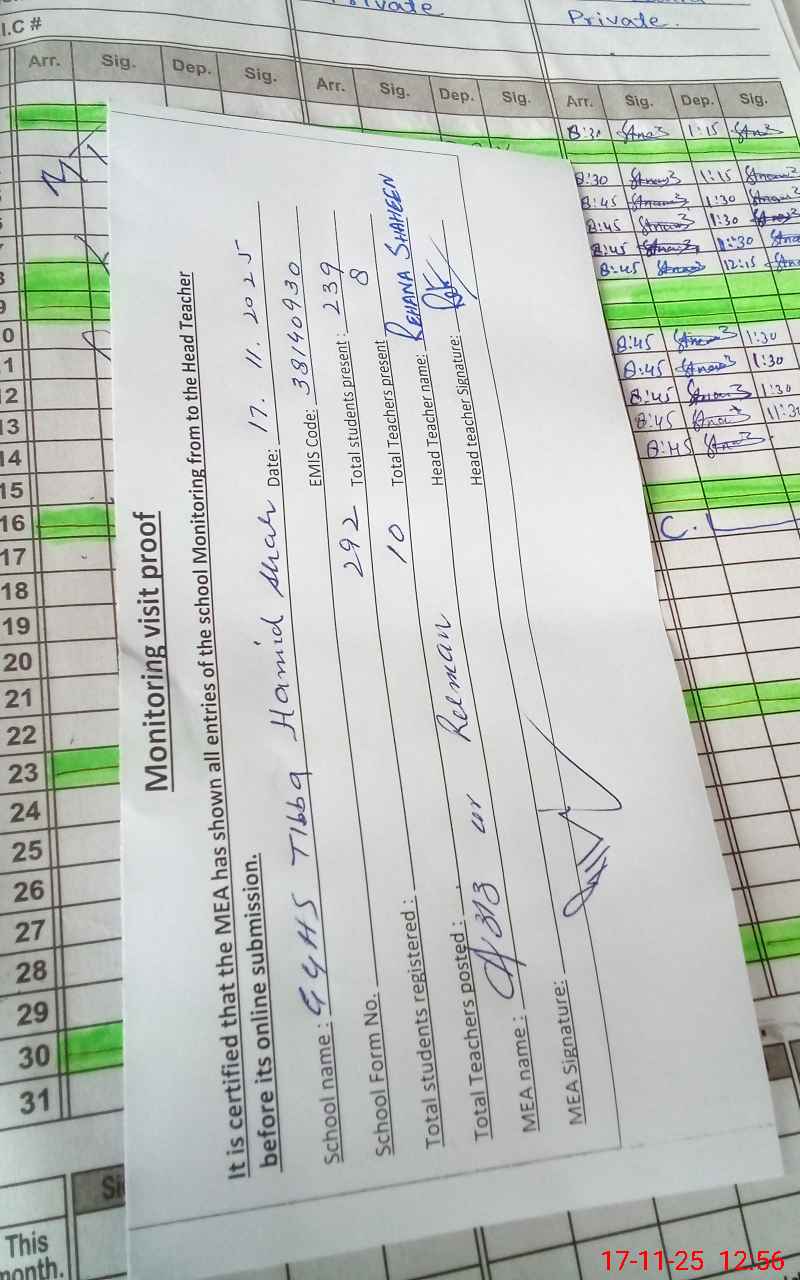 Private
Private.
I.C #
Arr. Sig. Dep. Sig. Arr. Sig. Dep. Sig. Arr. Sig. Dep. Sig.
8:30 1:15
8:30 1:15
8:45 1:30
8:45 1:30
8:45 1:30
8:45 12:15
8:45 1:30
8:45 1:30
8:45 1:30
8:45 11:30
8:45
C.L
Monitoring visit proof
It is certified that the MEA has shown all entries of the school Monitoring from to the Head Teacher
before its online submission.
School name : GGHS Tibba Hamid Shah Date: 17. 11. 2025
School Form No. EMIS Code: 38140930
Total students registered : 292 Total students present : 239
Total Teachers posted : 10 Total Teachers present 8
MEA name : ur Rehman Head Teacher name: REHANA SHAHEEN
MEA Signature: Head teacher Signature:
8
9
10
11
12
13
14
15
16
17
18
19
20
21
22
23
24
25
26
27
28
29
30
31
This
month.
17-11-25 12:56